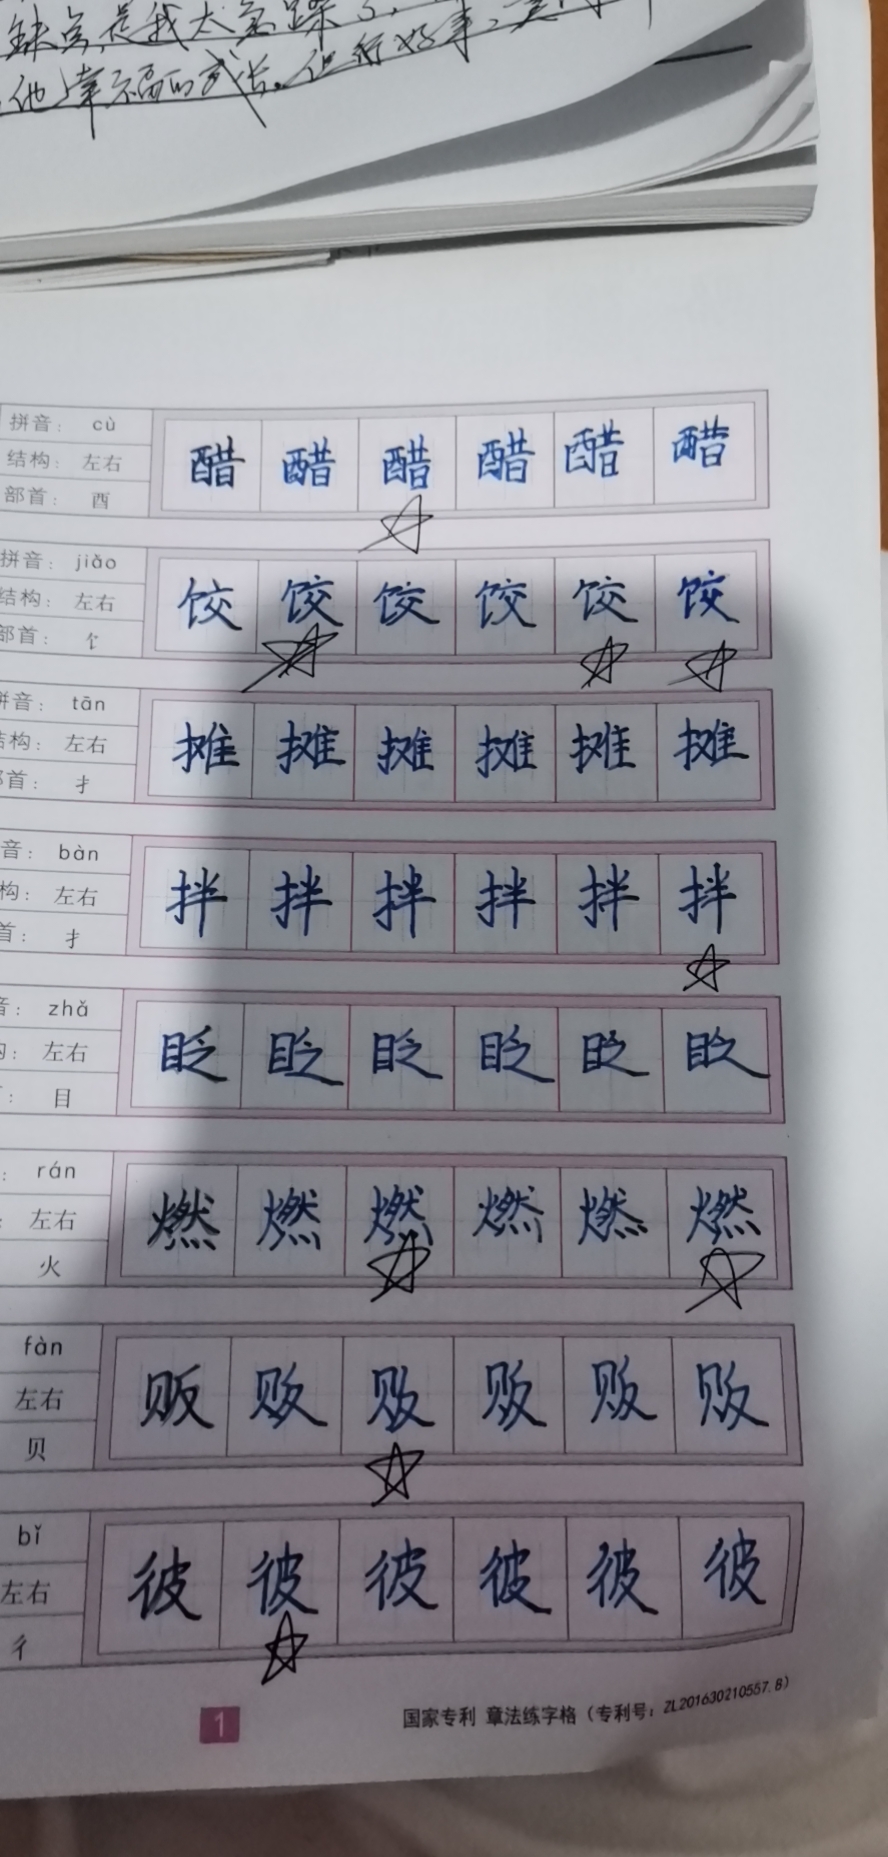 缺点,是我太急躁了,
他幸福的成长。但行好事,莫
拼音: cù
结构: 左右
部首: 酉
醋 醋 醋 醋 醋 醋
拼音: jiǎo
结构: 左右
部首: 饣
饺 饺 饺 饺 饺 饺
拼音: tān
结构: 左右
部首: 扌
摊 摊 摊 摊 摊 摊
音: bàn
构: 左右
首: 扌
拌 拌 拌 拌 拌 拌
音: zhǎ
构: 左右
: 目
眨 眨 眨 眨 眨 眨
: rán
: 左右
火
燃 燃 燃 燃 燃 燃
fàn
左右
贝
贩 贩 贩 贩 贩 贩
bǐ
左右
彳
彼 彼 彼 彼 彼 彼
1
国家专利 章法练字格(专利号:ZL201630210557.8)